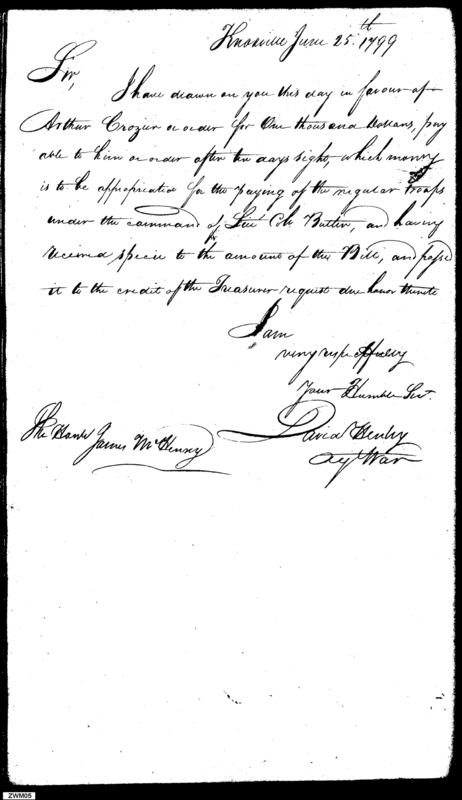 Knoxville June 25th. 1799
Sir,
I have drawn on you this day in favour of
Arthur Crozier or order for One thousand Dollars, pay
able to him or order after ten days sight, which money
is to be appropriated for the paying of the regular troops
under the command of Lieut Col Butler, and having
received specie to the amount of this Bill, and passed
it to the credit of the Treasurer request due honor thereto
I am
very respectfully
Your Humble Servt.
The Honble James McHenry
David Henley
Agt War
ZWM05